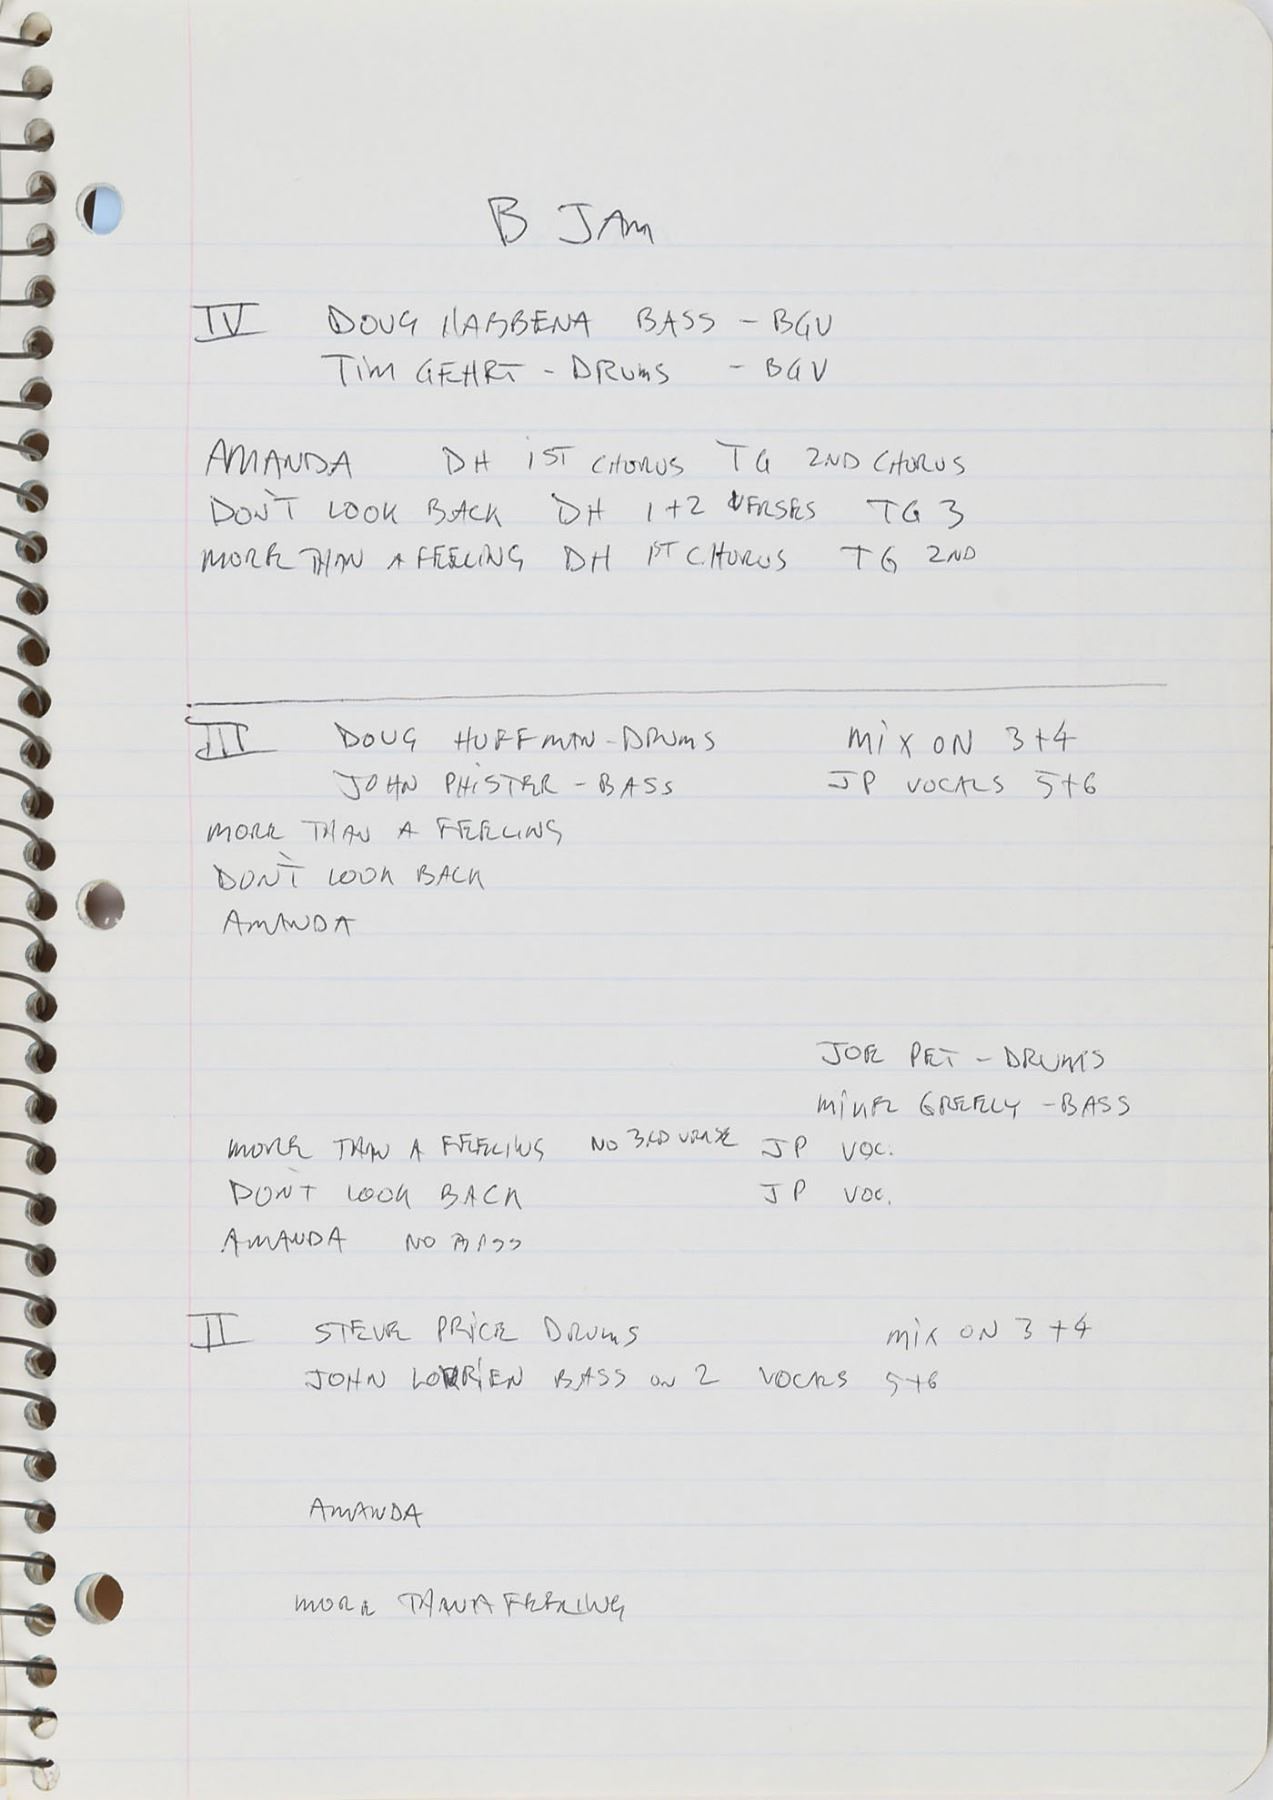 B JAM
IV DOUG HABBENA BASS - BGV
TIM GEHRT - DRUMS - BGV
AMANDA DH 1ST CHORUS TG 2ND CHORUS
DON'T LOOK BACK DH 1+2 VERSES TG 3
MORE THAN A FEELING DH 1ST CHORUS TG 2ND
III DOUG HUFFMAN - DRUMS MIX ON 3+4
JOHN PHISTER - BASS JP VOCALS 5+6
MORE THAN A FEELING
DON'T LOOK BACK
AMANDA
JOE PET - DRUMS
MIKE GREELY - BASS
MORE THAN A FEELING NO 3RD VERSE JP VOC.
DON'T LOOK BACK JP VOC.
AMANDA NO BASS
II STEVE PRICE DRUMS MIX ON 3+4
JOHN LORRIEN BASS ON 2 VOCALS 5+6
AMANDA
MORE THAN A FEELING